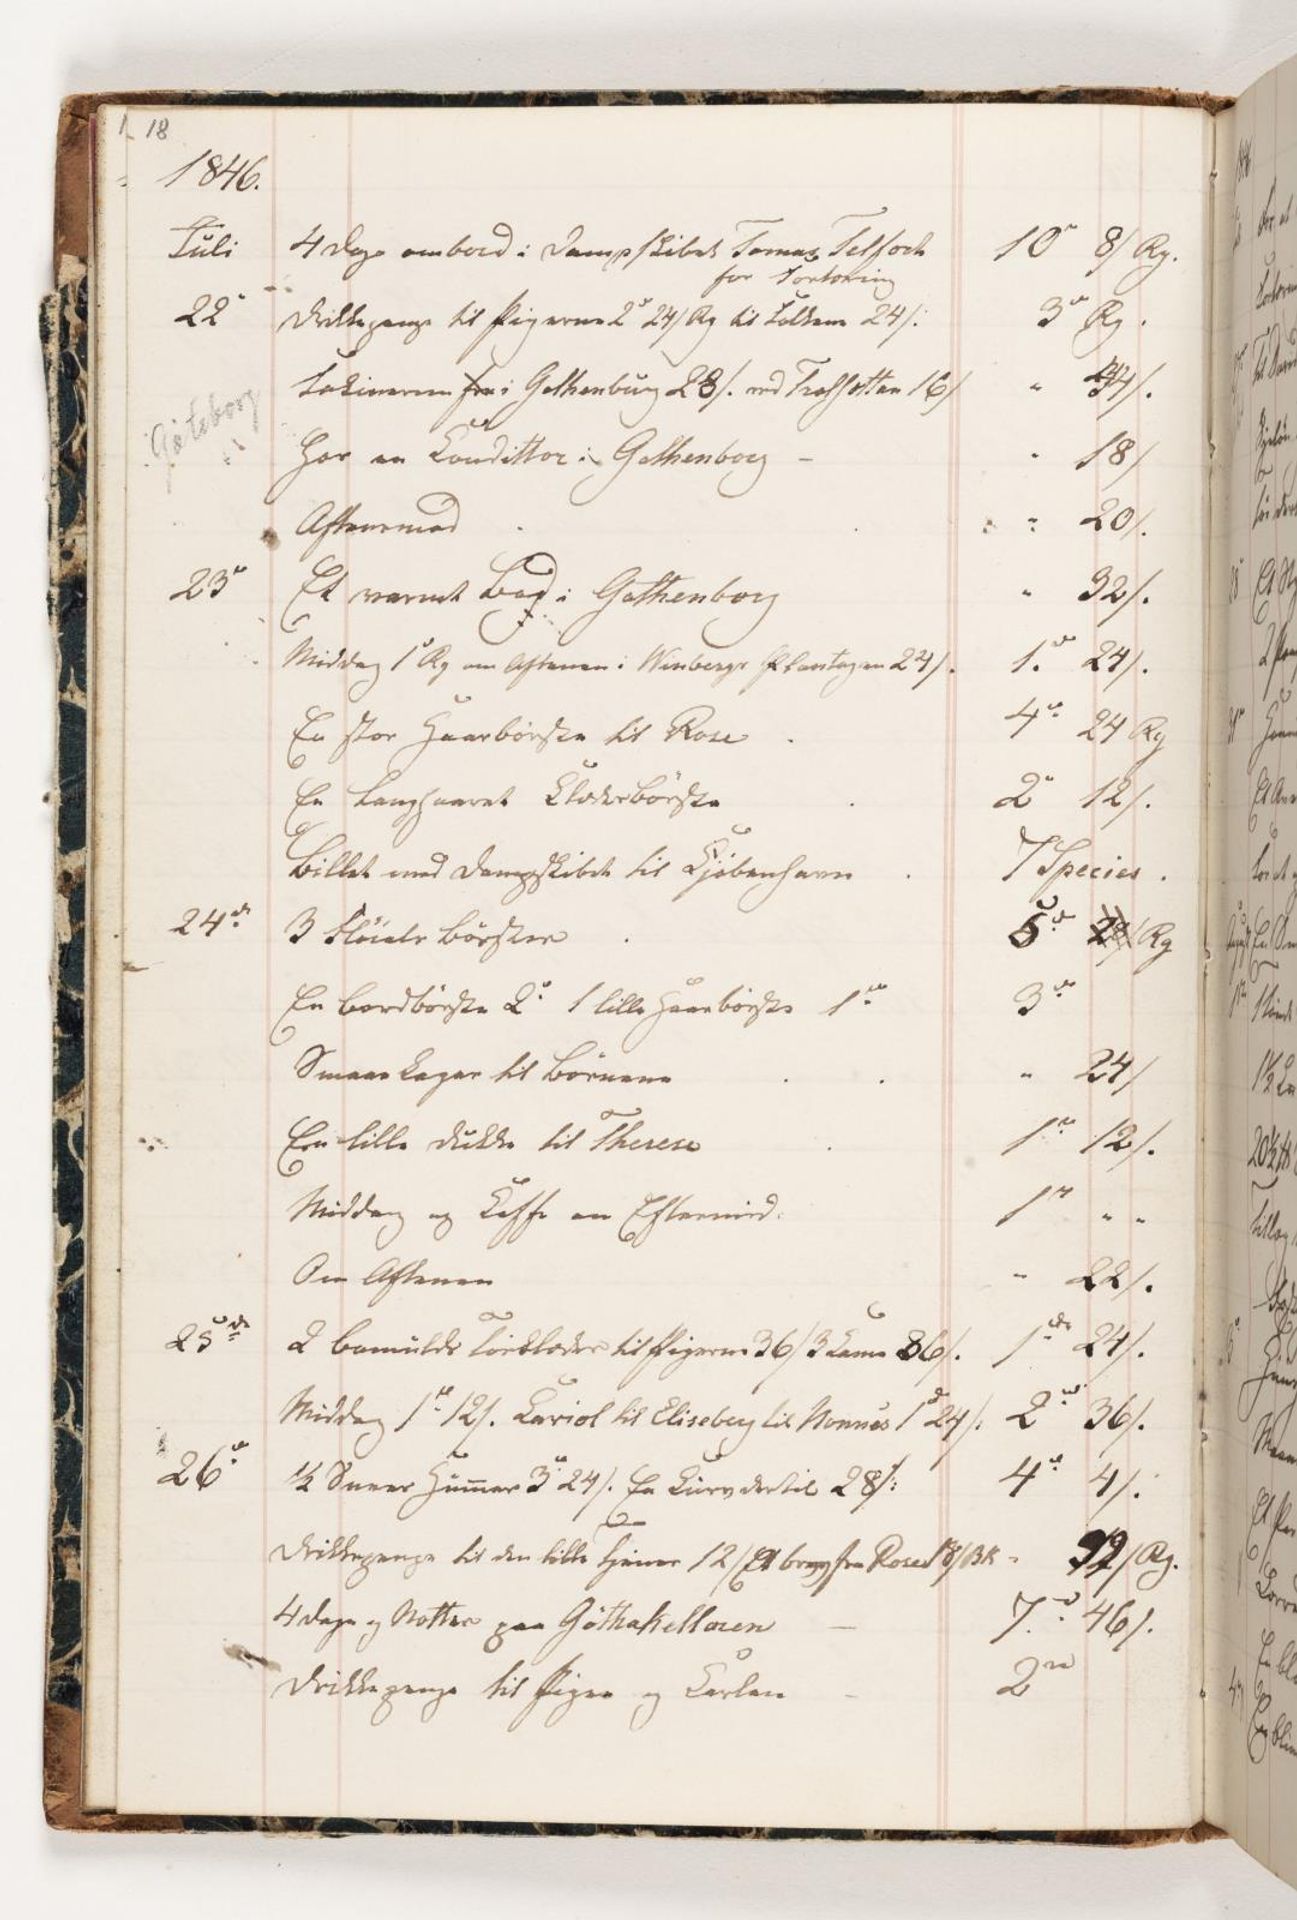 18
1846.
Juli 4 Dage ombord i Dampskibet Tomas Telford 10 8/ Rg.
for Fortæring
22 Drikkepenge til Pigerne 2 24/ Rg til 24/. 3 Rg.
i Gothenburg 28/. ved Trolhottan 16/ " 44/.
Göteborg
Hos en Condittor i Gothenborg - " 18/
Aftensmad " 20/.
23 Et varmt Bad i Gothenborg " 32/.
Middag 1 Rg om Aftenen i Winbergs Plantagen 24/. 1. 24/.
En stor Haarbörste til Rose 4 24 Rg
En langhaaret Klæderbörste 2 12/.
Billet med Dampskibet til Kjöbenhavn 7 Species.
24 3 Flöiels Börster 5 Rg
En Bordbörste 2 1 lille Haarbörste 1 3
Smaae Kager til Börnene " 24/
En lille Dukke til Therese 1 12/.
Middag og Kaffe om Eftermid: 1 " "
Om Aftenen " 22/.
25 2 Bomulds Törklæder til Pigerne 36/ 3 Kamme 36/. 1 24/.
Middag 1 12/. Kariol til Eliseberg til Nonnes 1 24/: 2 36/.
26 ½ Snees Hummer 3 24/. En Kurv dertil 28/: 4 4/.
Drikkepenge til den lille Tjener 12/ Et brev fra Rosed 18/ BK " 32/ Rg.
4 Dage og Nætter paa Göthakellaren - 7 46/.
Drikkepenge til Pigen og Karlen - 2